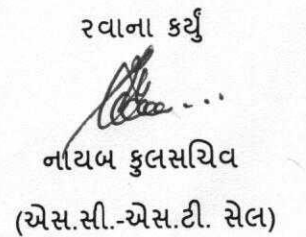 રવાના કર્યું
નાયબ કુલસચિવ
(એસ.સી.-એસ.ટી. સેલ)